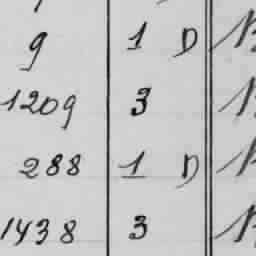 9 1 D
1209 3
288 1 D
1438 3